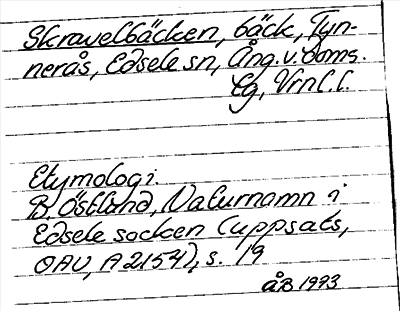 Skravelbäcken, bäck, Tyn-
nerås, Edsele sn, Ång. v. doms.
lg, Vrnl.l.
Etymologi.
B. Östlund, Naturnamn i
Edsele socken (uppsats,
OAU, A 2154), s. 19
ÅB 1993